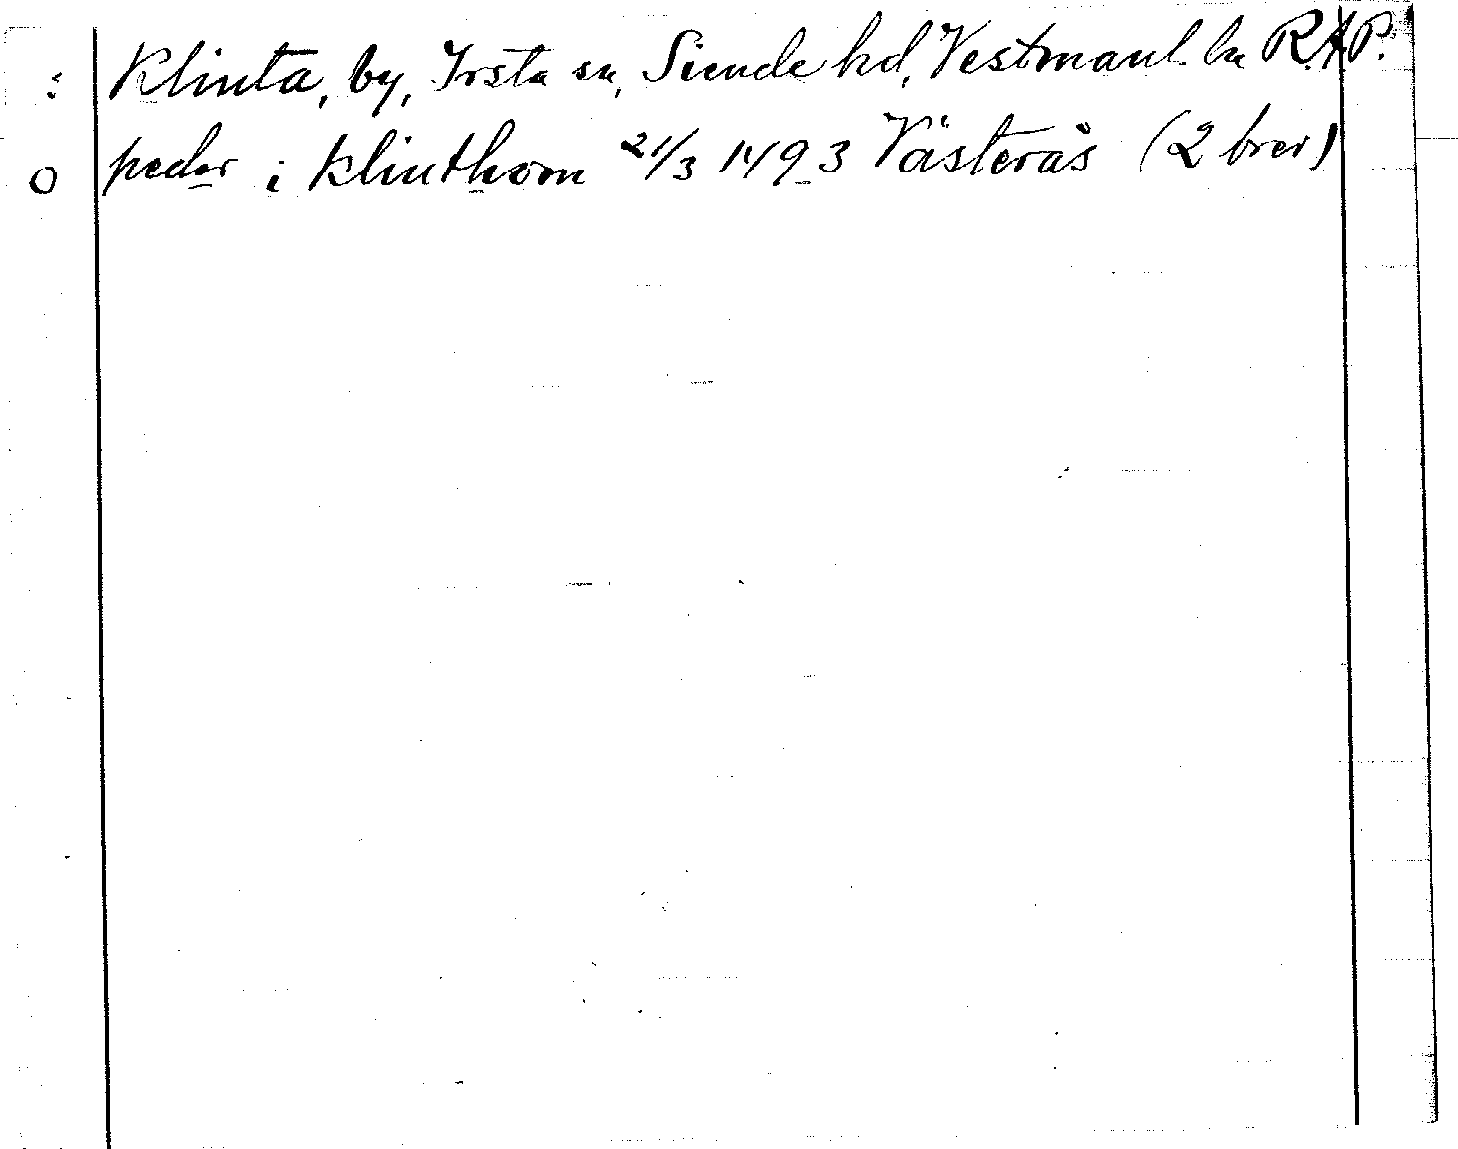 : Klinta, by, Irsta sn, Siende hd, Vestmanl. ln R.A.P.
O peder i Klinthom 21/3 1493 Västerås (2 brev)